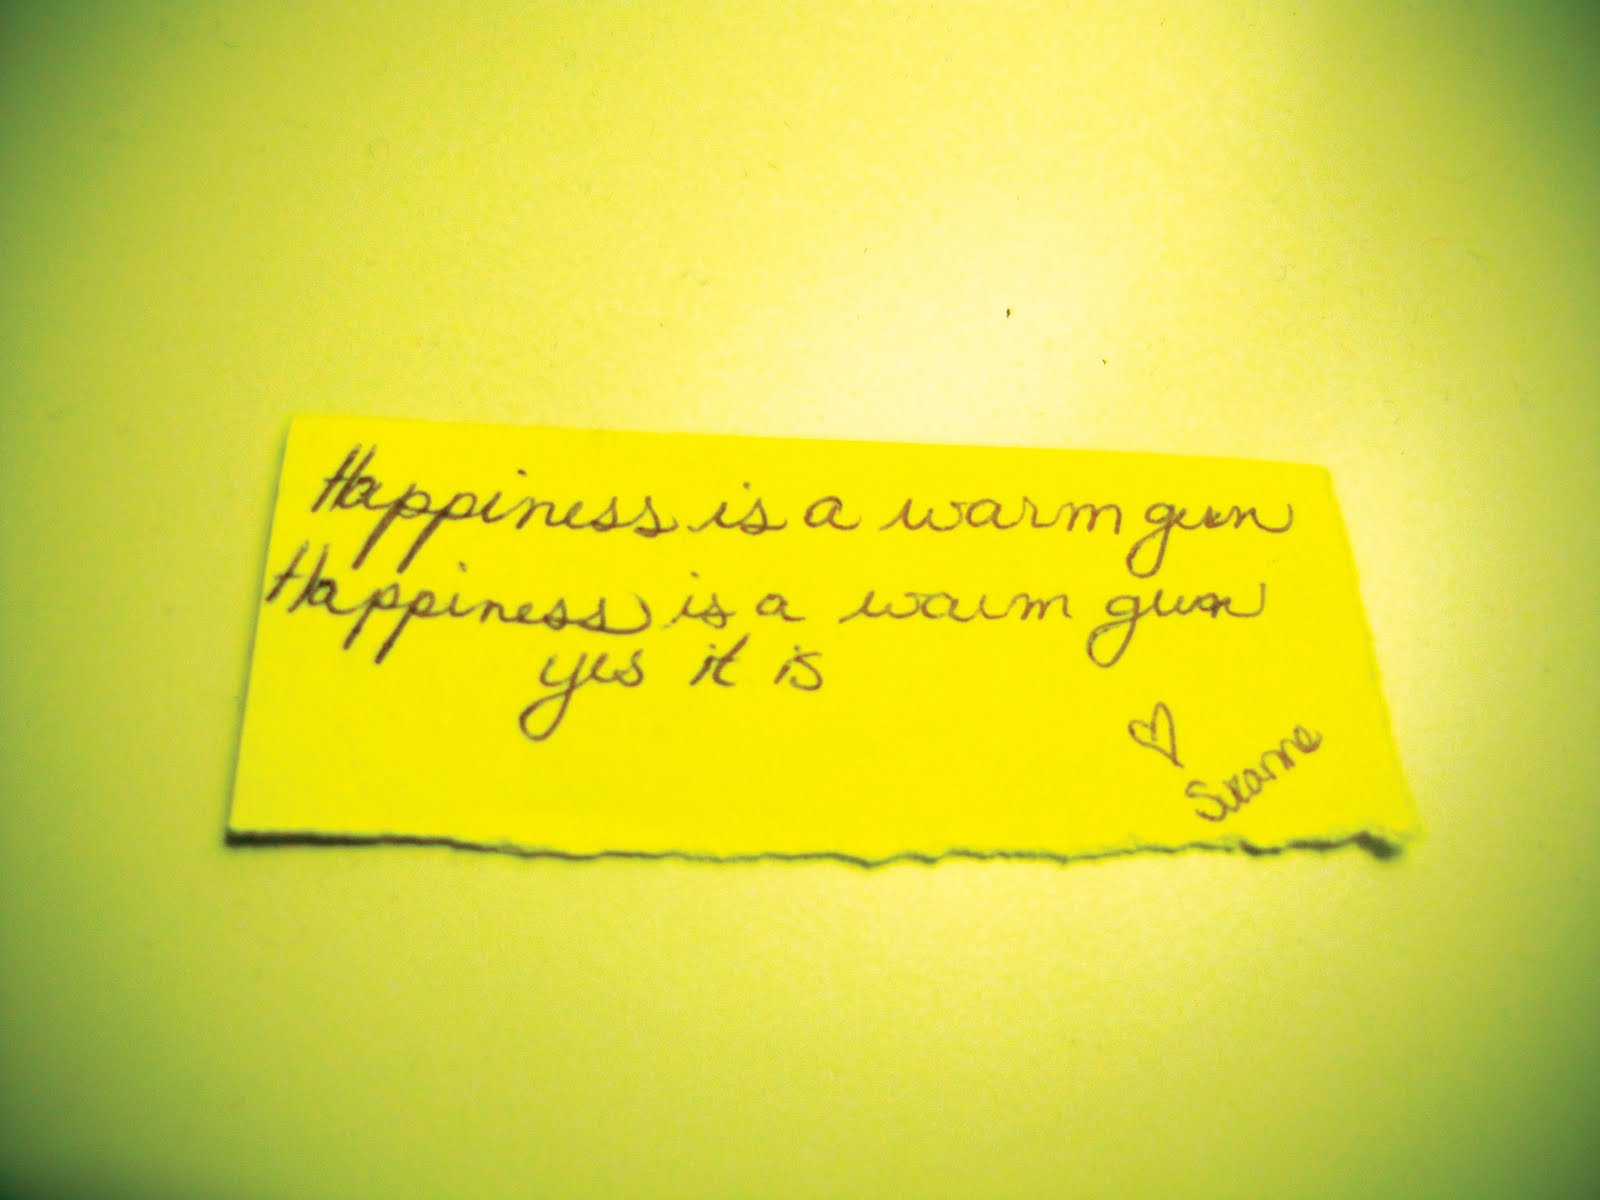 Happiness is a warm gun
Happiness is a warm gun
yes it is
♡
Suzanne